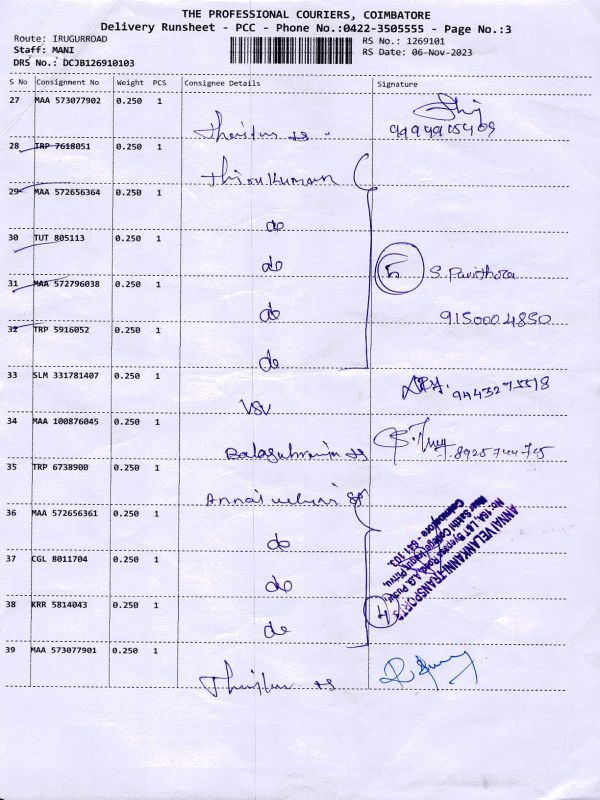 THE PROFESSIONAL COURIERS, COIMBATORE
Delivery Runsheet - PCC - Phone No.:0422-3505555 - Page No.:3
Route: IRUGURROAD
RS No.: 1269101
Staff: MANI
RS Date: 06-Nov-2023
DRS No.: DCJB126910103
S No Consignment No Weight PCS Consignee Details Signature
27 MAA 573077902 0.250 1
28 TRP 7618051 0.250 1
Thirukumaran
29 MAA 572656364 0.250 1
do
30 TUT 805113 0.250 1
do
5 S. Pavithra
31 MAA 572796038 0.250 1
do
9150004850
32 TRP 5916052 0.250 1
do
33 SLM 331781407 0.250 1
VSV
34 MAA 100876045 0.250 1
35 TRP 6738900 0.250 1
36 MAA 572656361 0.250 1
do
ANNAI VELANKANNI TRANSPORTS
Coimbatore - 641 103.
37 CGL 8011704 0.250 1
do
4
38 KRR 5814043 0.250 1
do
39 MAA 573077901 0.250 1